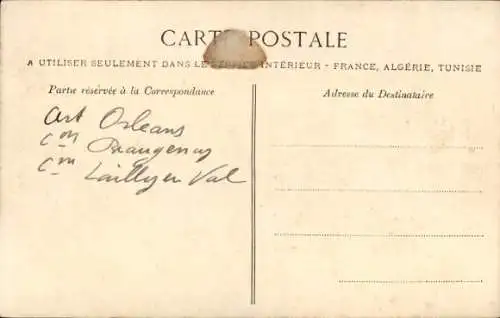 CARTE POSTALE
A UTILISER SEULEMENT DANS LE SERVICE INTÉRIEUR - FRANCE, ALGÉRIE, TUNISIE
Partie réservée à la Correspondance
Adresse du Destinataire
Art Orleans
Con Beaugency
Cm Lailly en Val